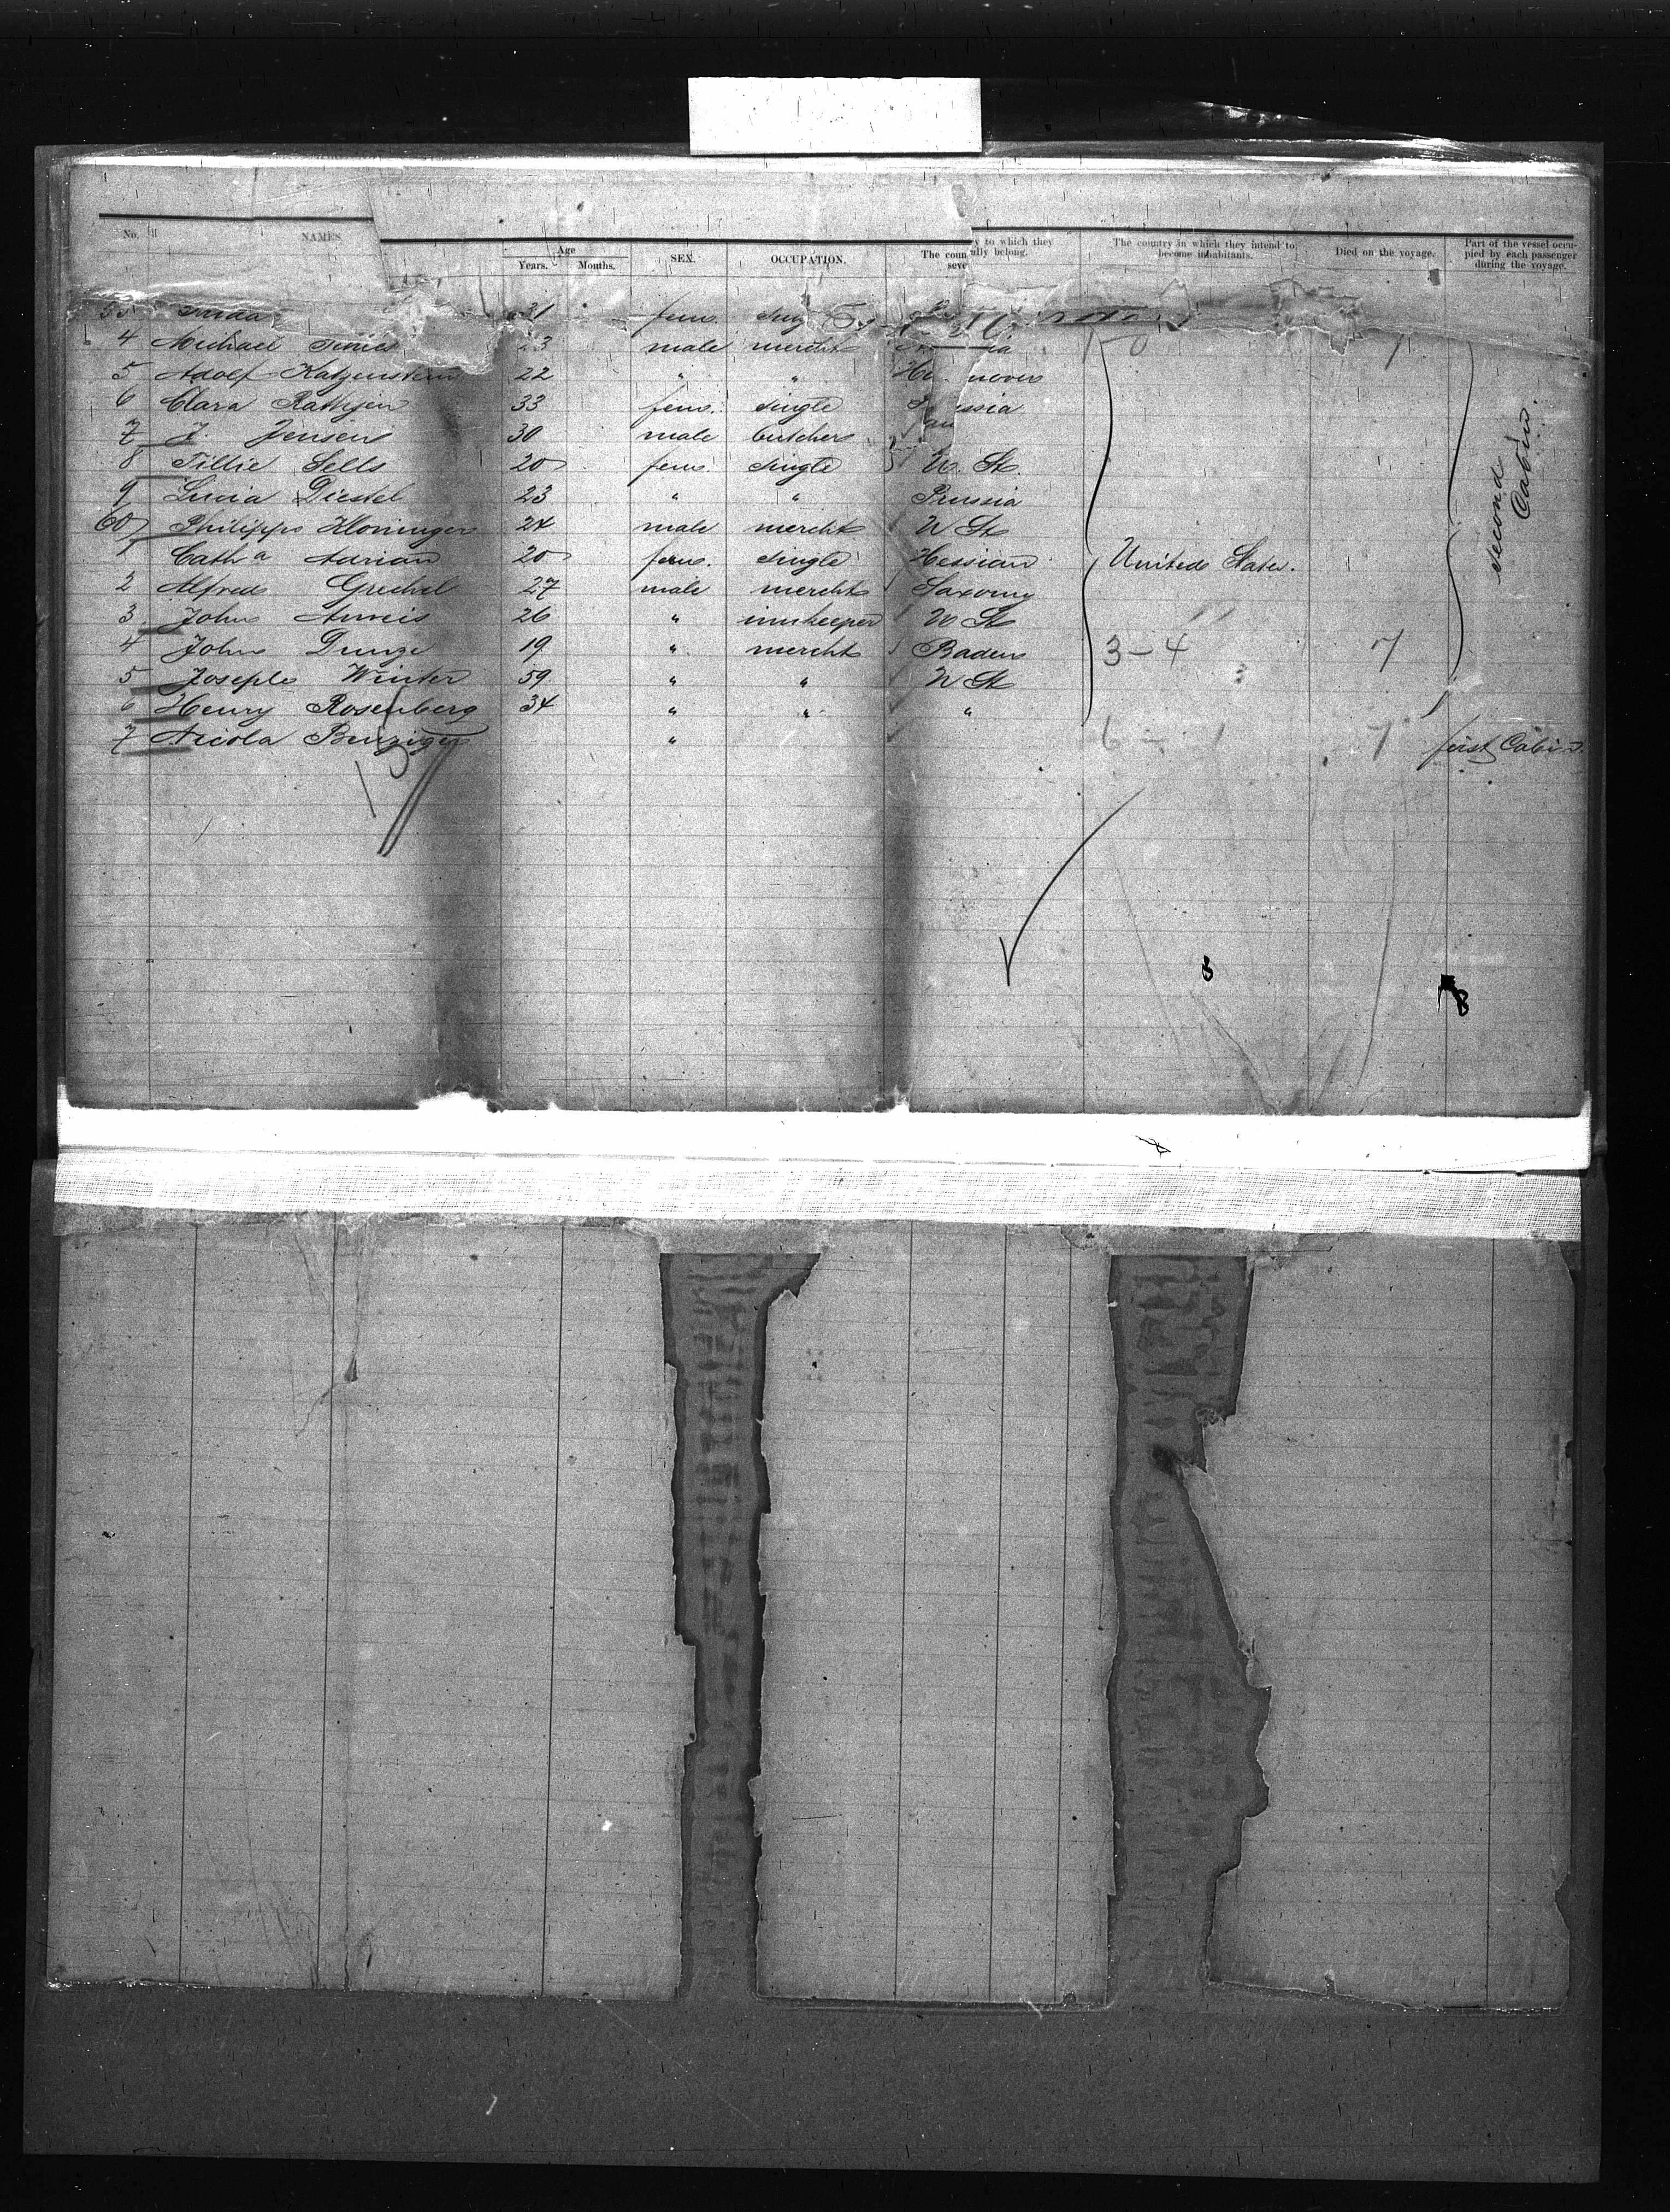 No. NAMES Age Years. Months. SEX. OCCUPATION. The coun y to which they seve ally belong. The country in which they intend to become inhabitants. Died on the voyage. Part of the vessel occupied by each passenger during the voyage.
31 fem.
4 Michael 23 male mercht
5 Adolf Katzenstein 22 " " Ha nover
6 Clara Rathjen 33 fem. single ussia
7 J. Jensen 30 male butcher
8 Tillie Sells 20 fem. single U. St.
9 Lucia Diestel 23 " " Prussia
60 Philipp Honinger 24 male mercht U St
1 Cath a Adrian 20 fem. single Hessian United States.
2 Alfred Greshel 27 male mercht Saxony
3 John 26 " innkeeper U St
4 John Dunze 19 " mercht Baden 3-4 7
5 Joseph Winter 59 " " U St
6 Henry Rosenberg 34 " " "
7 Nicola Benziger " 7 first Cabin.
second Cabin.
8
8